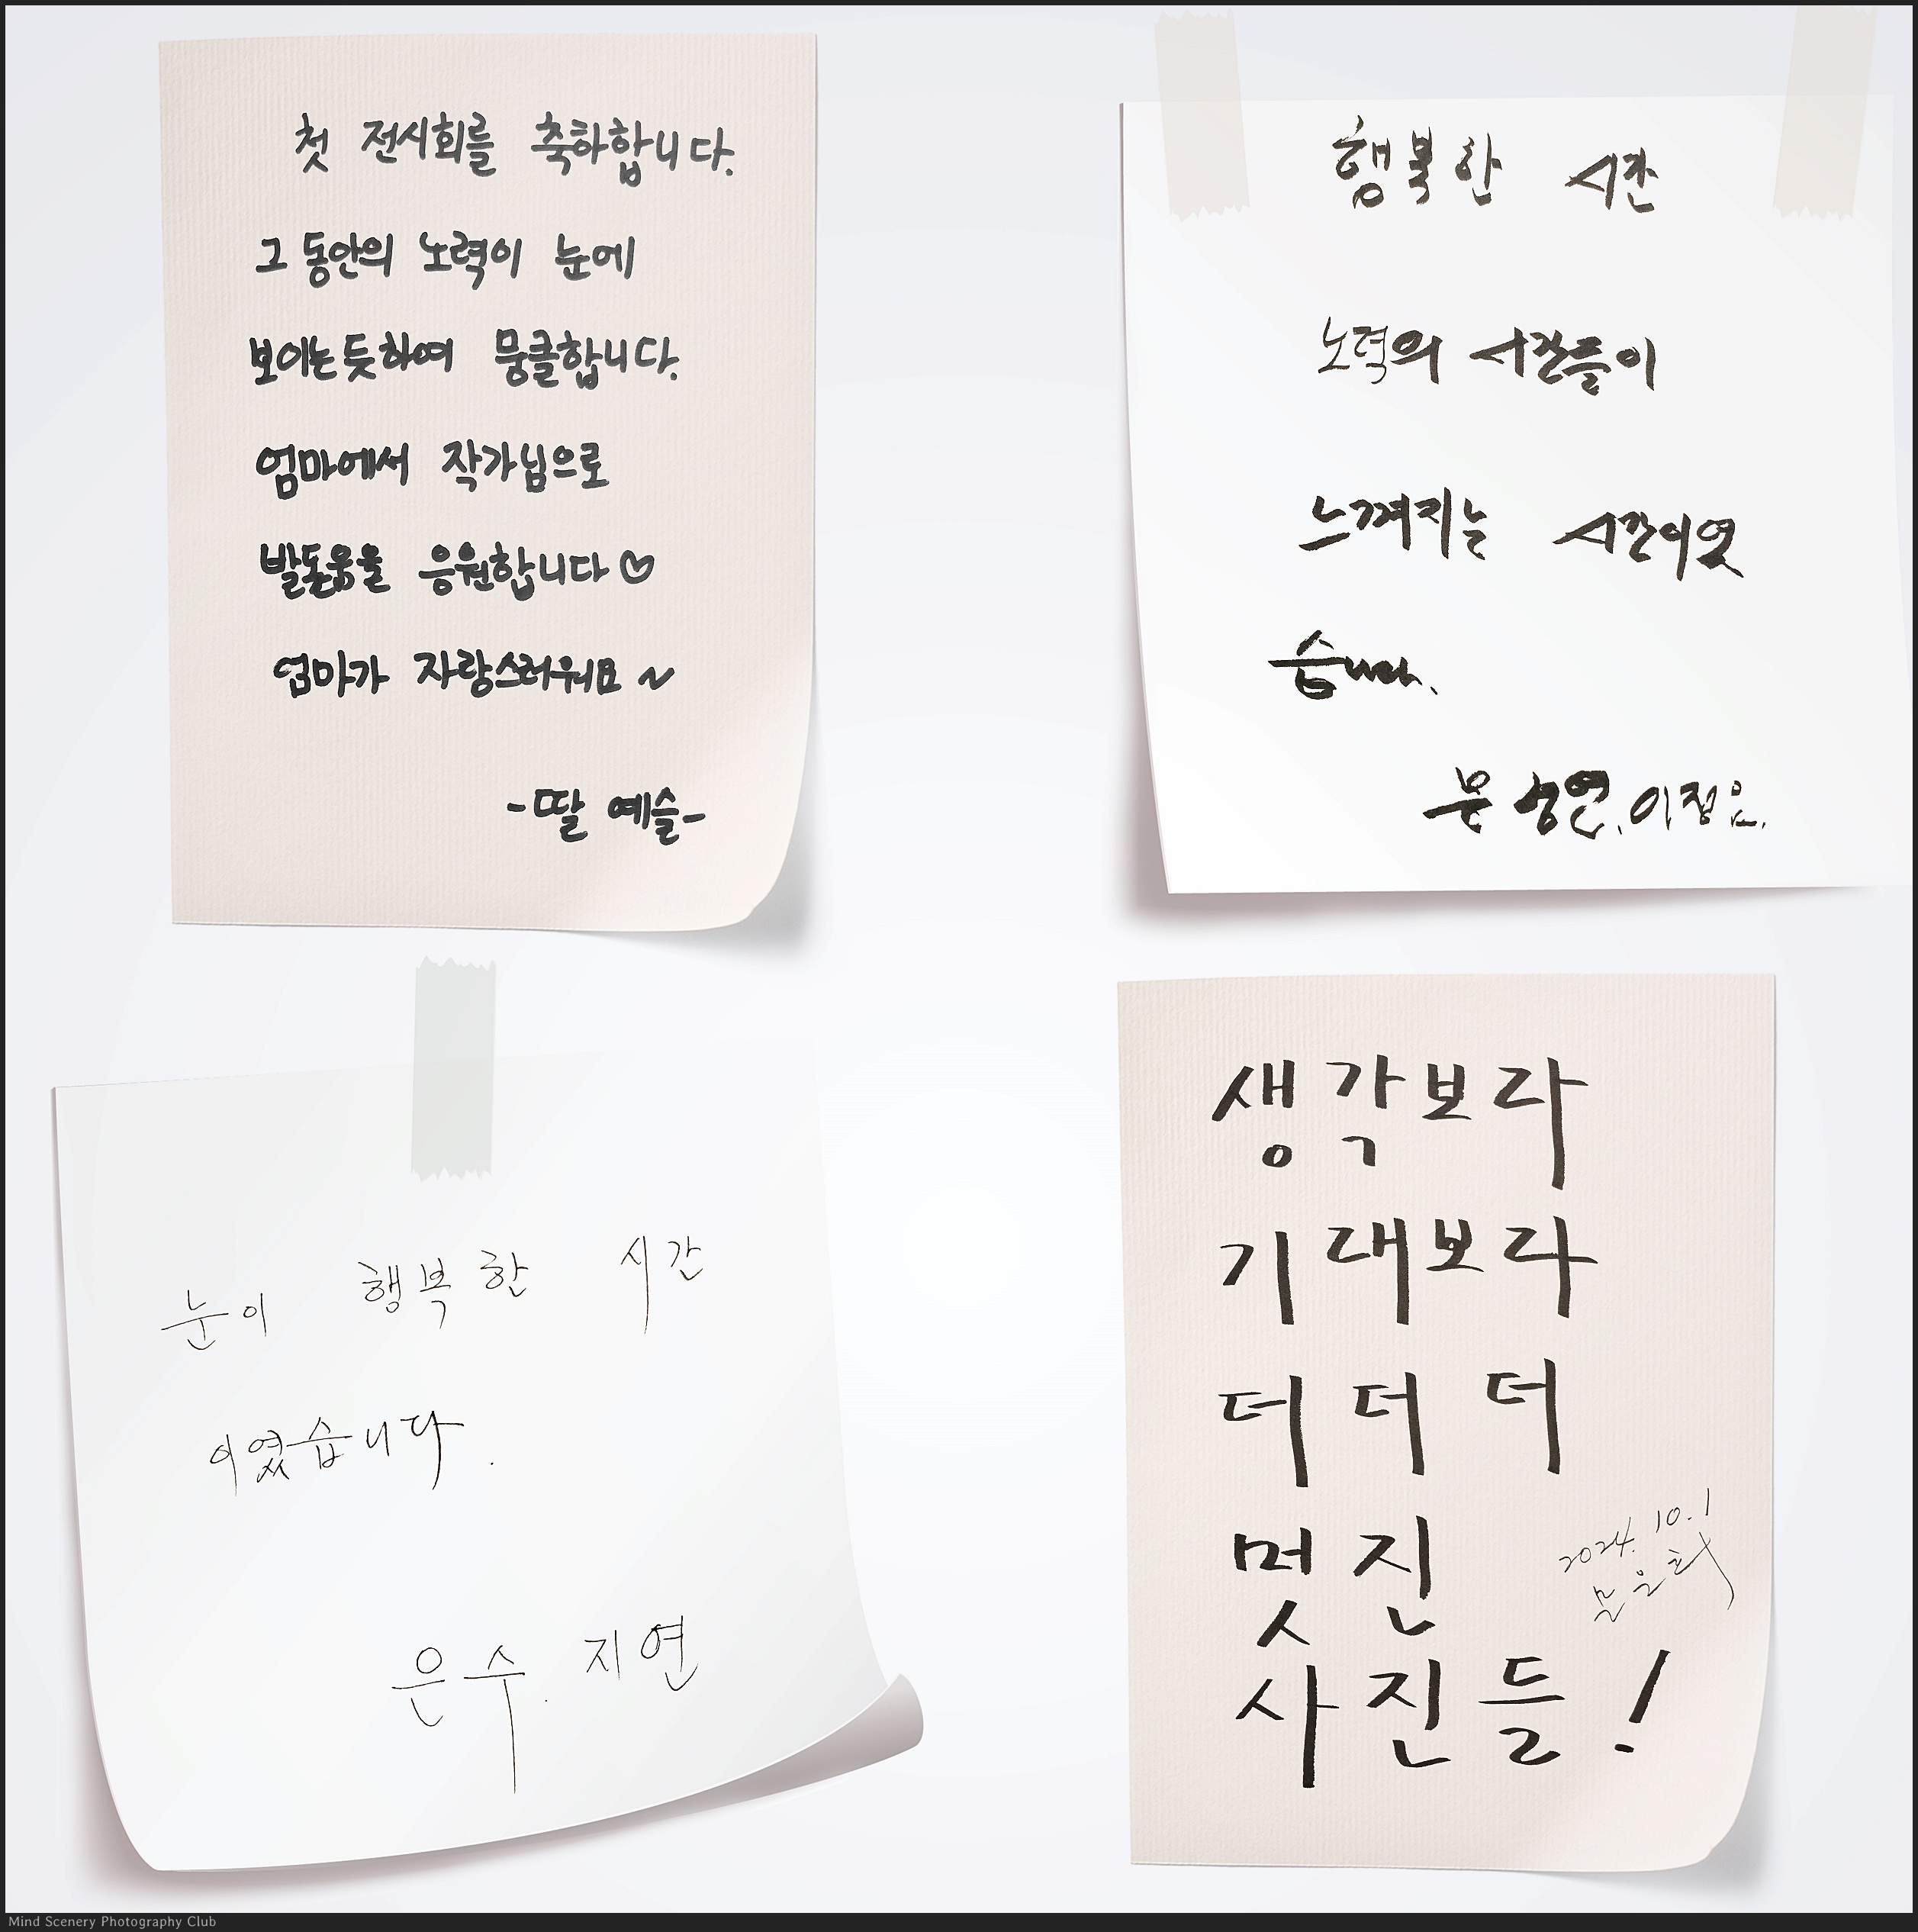 첫 전시회를 축하합니다.
그동안의 노력이 눈에
보이는듯하여 뭉클합니다.
엄마에서 작가님으로
발돋움을 응원합니다♡
엄마가 자랑스러워요~
-딸 예슬-
행복한 시간
노력의 시간들이
느껴지는 시간이였
습니다.
문승연. 이정은.
눈이 행복한 시간
이였습니다.
은수. 지연
생각보다
기대보다
더 더 더
멋진
사진들!
2024. 10. 1
문은희
Mind Scenery Photography Club